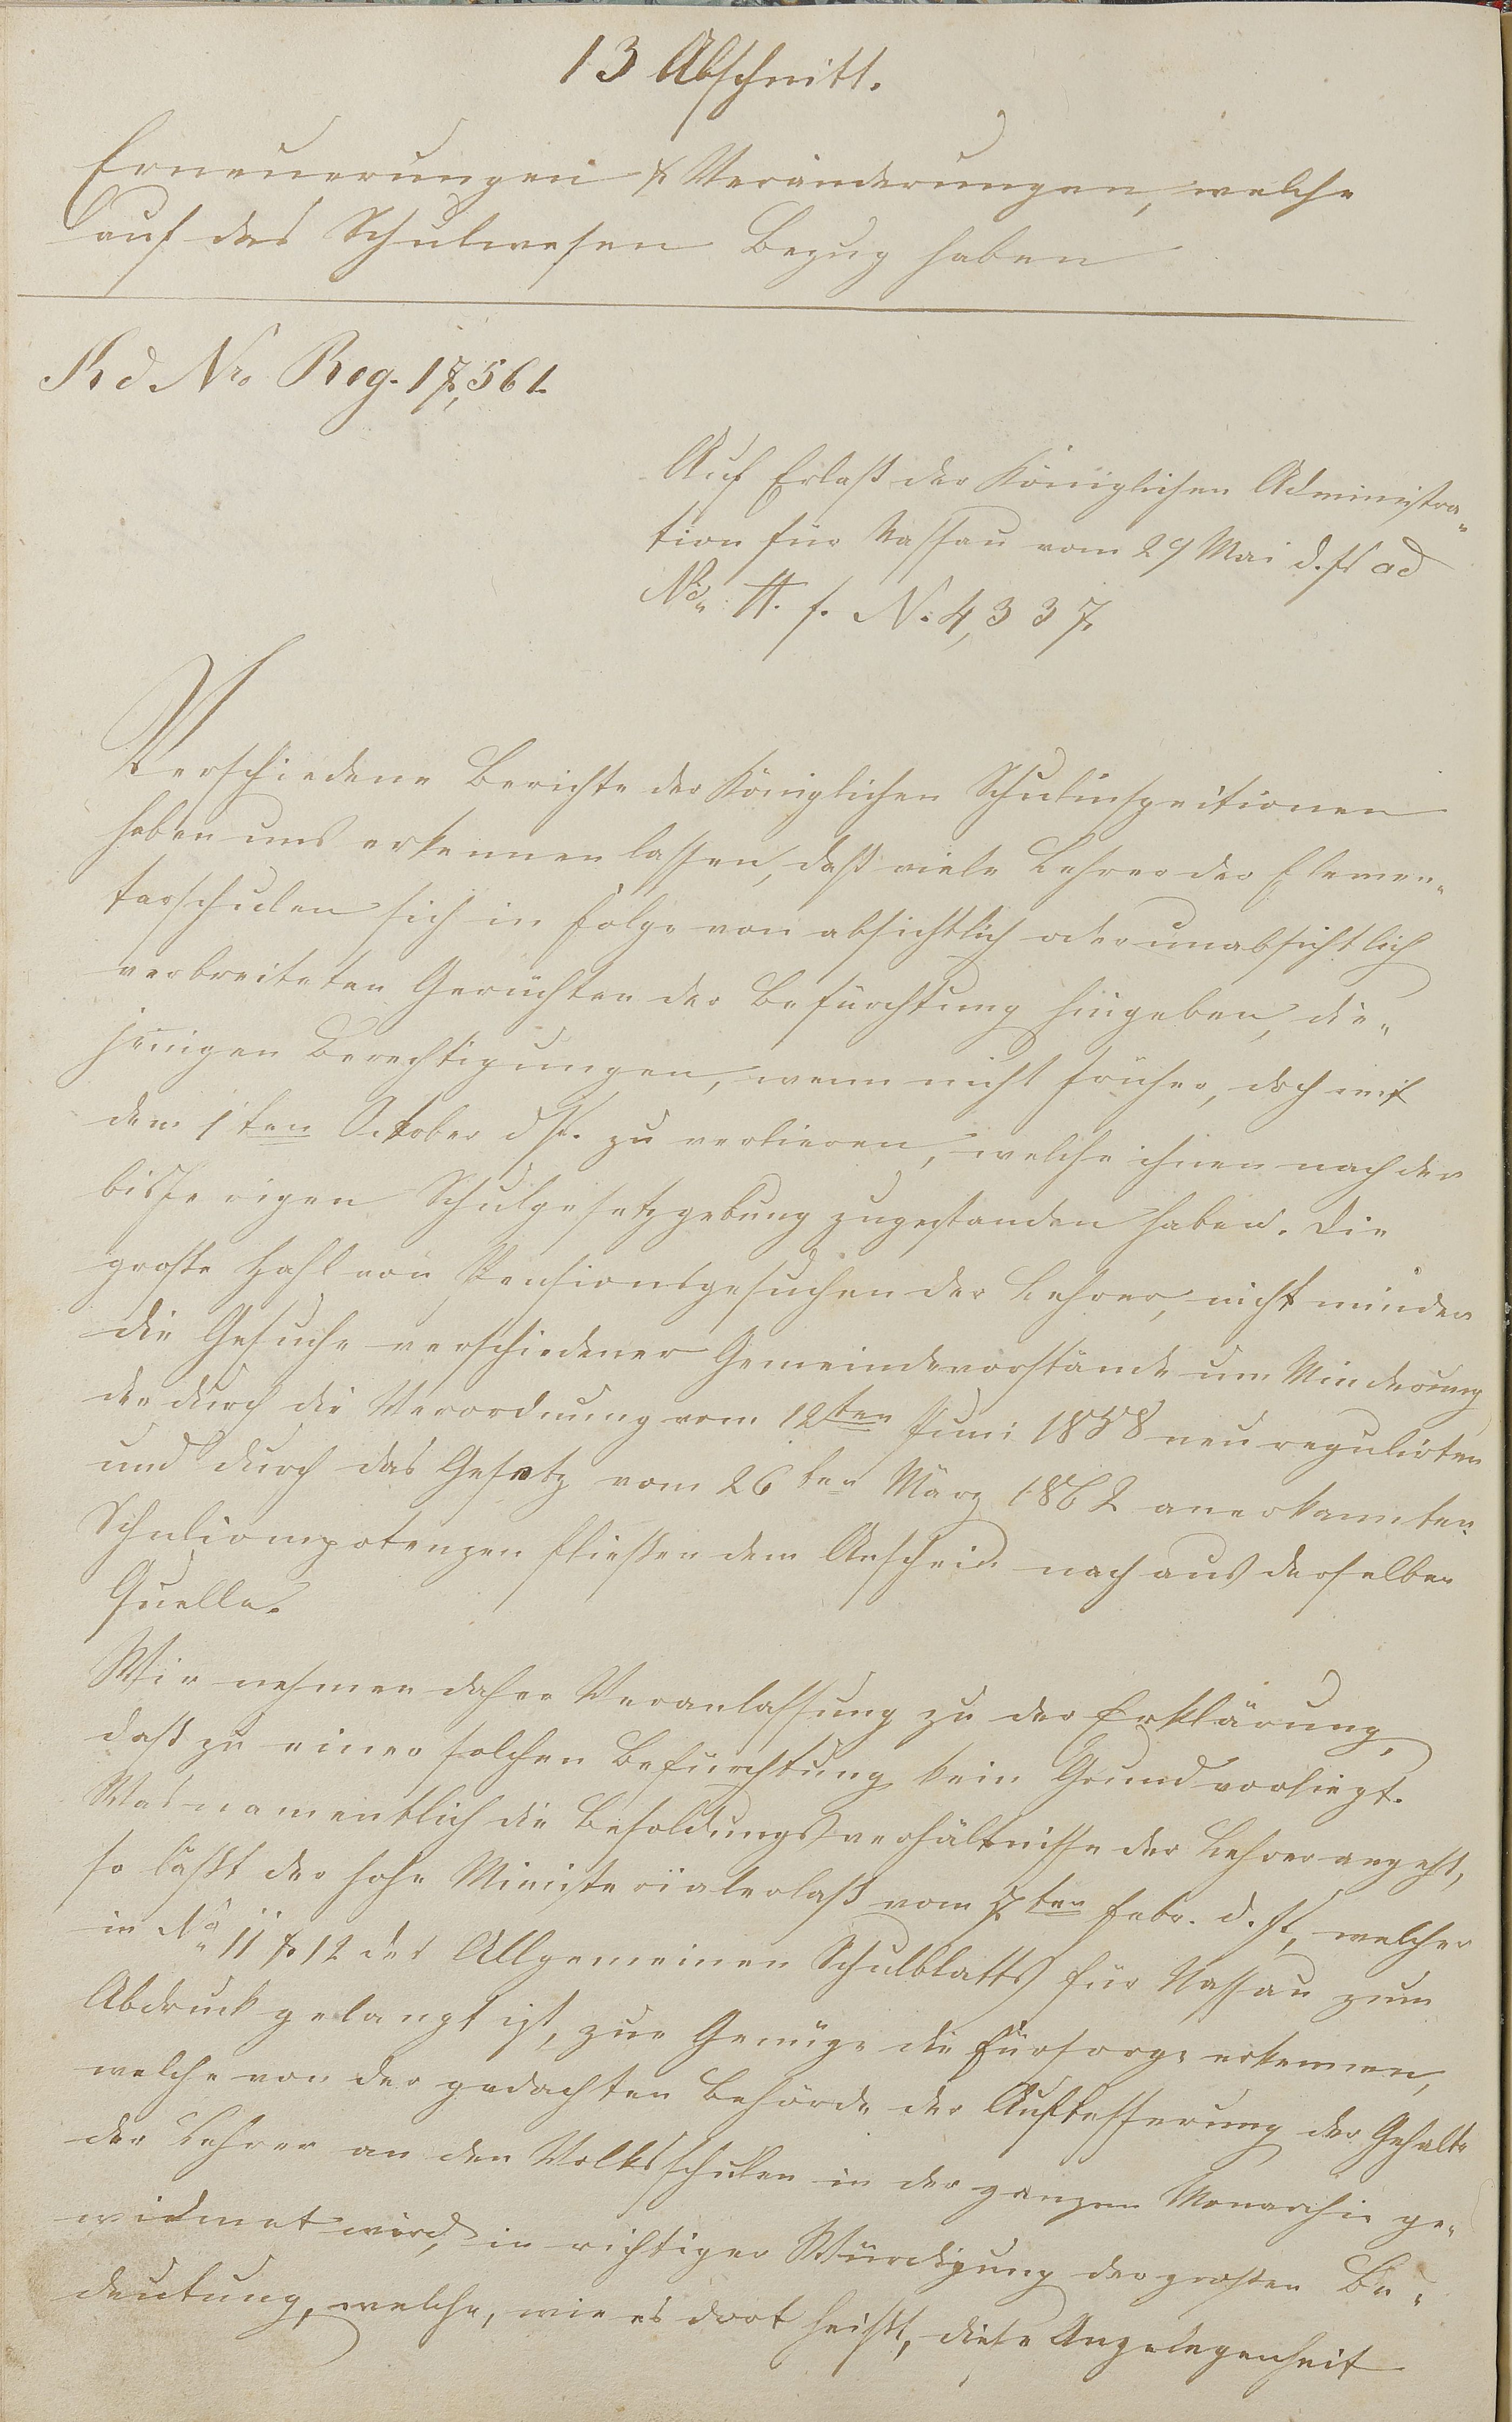 13 Abschnitt.
Erneuerungen & Veränderungen, welche
auf das Schulwesen Bezug haben
Ad Nro Reg. 17,561
Auf Erlaß der Königlichen Administra„
tion für Nassau vom 29 Mai d. Js ad
N. 4,337.
Verschiedene Berichte der Königlichen Schulinspectionen
haben uns erkennen lassen, daß viele Lehrer der Elemen„
tarschulen sich in Folge von absichtlich oder unabsichtlich
verbreiteten Gerüchten der Befürchtung hingeben, die„
jenigen Berechtigungen, wenn nicht früher, doch mit
dem 1ten October d Js. zu verlieren, welche ihnen nach der
bisherigen Schulgesetzgebung zugestanden haben. Die
große Zahl von Pensionsgesuchen der Lehrer, nicht minder
die Gesuche verschiedener Gemeindevorstände um Minderung
der durch die Verordnung vom 12ten Juni 1858 neu regulirten
und durch das Gesetz vom 26ten März 1862 anerkannten
Schulcompetenzen fließen dem Anschein nach aus derselben
Quelle.
Wir nehmen daher Veranlassung zu der Erklärung,
daß zu einer solchen Befürchtung kein Grund vorliegt.
Was namentlich die Besoldungsverhältnisse der Lehrer angeht,
so läßt der hohe Ministerialerlaß vom 7ten Febr. d. Js, welcher
in No 11 & 12 des Allgemeinen Schulblatts für Nassau zum
Abdruck gelangt ist, zur Genüge die Fürsorge erkennen,
welche von der gedachten Behörde der Aufbesserung der Gehalte
der Lehrer an den Volksschulen in der ganzen Monarchie ge„
widmet wird, in richtiger Würdigung der großen Be„
deutung, welche, wie es dort heißt, diese Angelegenheit